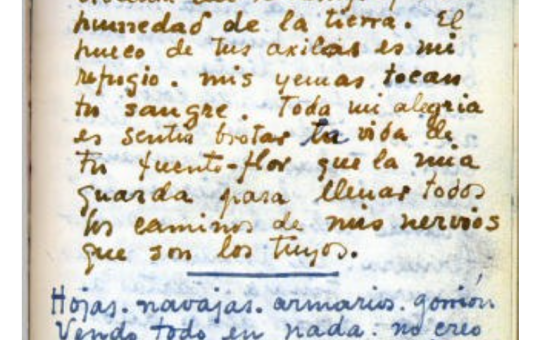 humedad de la tierra. El
hueco de tus axilas es mi
refugio. mis yemas tocan
tu sangre. Toda mi alegria
es sentir brotar tu vida de
tu fuente-flor que la mia
guarda para llenar todos
los caminos de mis nervios
que son los tuyos.
Hojas. navajas. armarios. gorrión
Vendo todo en nada. no creo